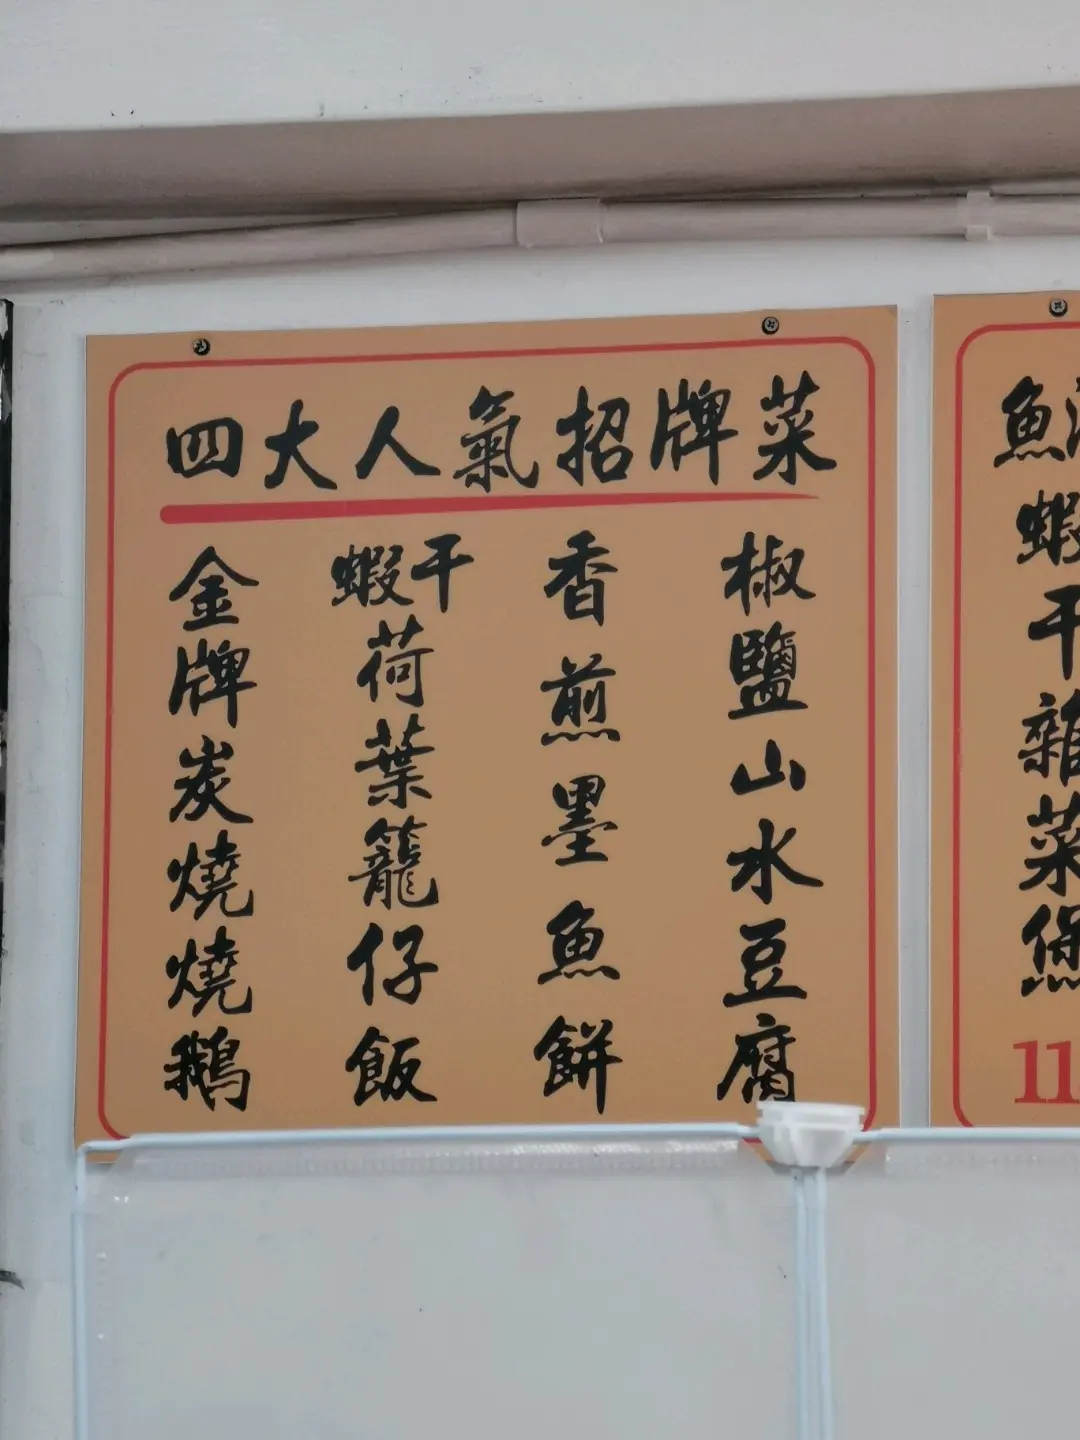 四大人氣招牌菜
椒鹽山水豆腐
香煎墨魚餅
蝦干荷葉籠仔飯
金牌炭燒燒鵝
蝦干雜菜煲
11